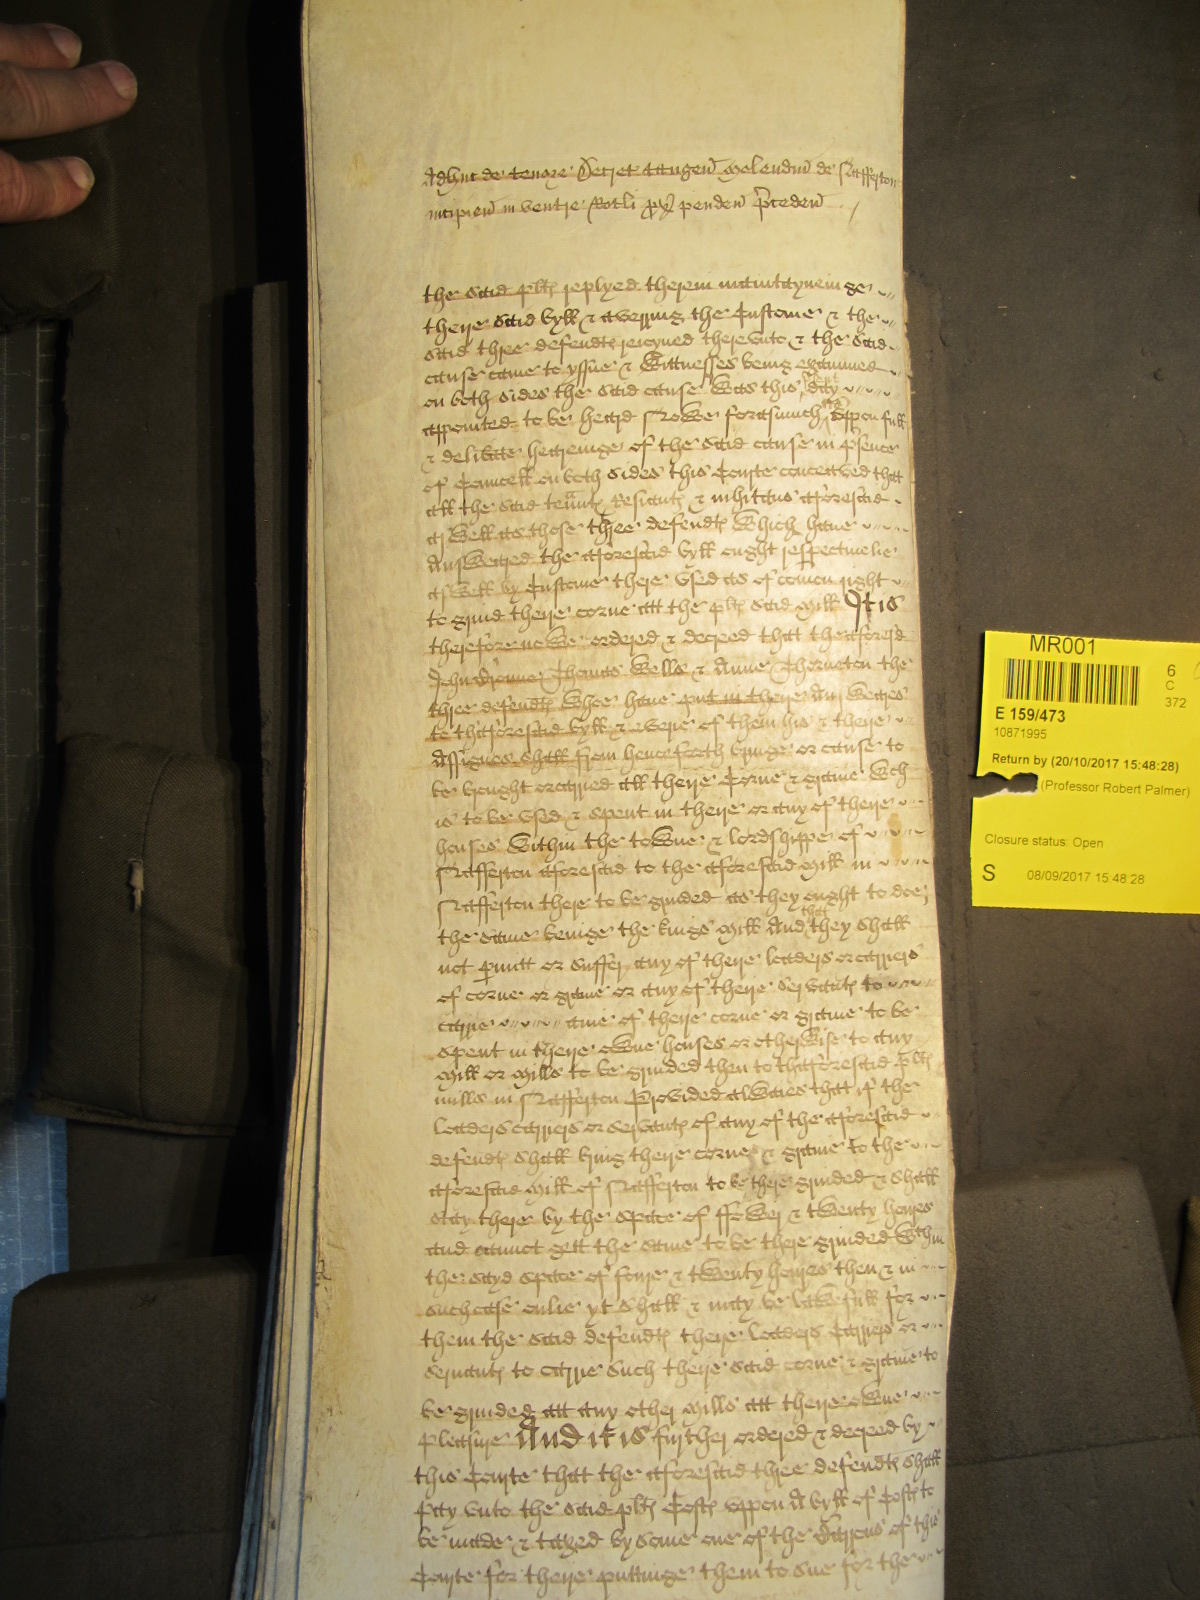 Adhuc de tenore Decret tangen Molendin de Nafferton
incipien in ventre Rotli px penden preceden
the said plts replyed therein maintayneinge
there said byll & averring the Custome & the
said three defendts reioyned therevnto & the said
cause came to yssue & Wittnesses being examined
on both sides the said cause was this day
appointed to be heard Nowe forasmuch as vppon full
& delibate heareinge of the said cause in psence
of Councell on both sides this Courte conceaved that
all the said tennts Resiants & inhitans aforesaid
aswell as those three defendts which haue
Answeared the aforesaid byll ought respectiuelie
aswell by Custome there vsed as of comon right
to grind there corne att the plts said Mill It is
therefore nowe ordered & decreed that the aforesd
John Thomas Wells & Anne Thorneton the
three defendts whoe haue put in there Answeares
to thaforesaid byll & everie of them his & there
Assignes shall from henceforth bringe or cause to
be brought or carried all there Corne & graine wch
is to be vsed & spent in there or any of there
houses within the towne & lordshippe of
Nafferton aforesaid to the aforesaid Mill in
Nafferton there to be grinded as they ought to doe
the same beinge the kings Mill And that they shall
not pmitt or suffer any of there leaders or carriers
of corne or graine or any of there servants to
carrie anie of there corne or graine to be
spent in there owne houses or otherwise to any
Mill or Mills to be grinded then to thaforesaid plts
mills in Nafferton Provided alwaies that if the
leaders carriers or servants of any of the aforesaid
defendts shall bring there corne & graine to the
aforesaid Mill of Nafferton to be there grinded & shall
stay there by the space of ffower & twenty houres
and cannot gett the same to be there grinded wthin
the sayd space of foure & twenty houres then & in
such case onlie yt shall & may be lawefull for
them the said defendts there leaders Carriers or
seruants to carrie such there said corne & graine to
be grinded att any other Mills att there owne
pleasure And it is further ordered & decreed by
this Courte that the aforesaid three defendts shall
pay vnto the said plts Costs vppon A byll of Costs to
be made & taxed by some one of the Barons of this
Courte for there puttinge them to sue for the
MR001
6
C
372
E 159/473
10871995
Return by (20/10/2017 15:48:28)
(Professor Robert Palmer)
Closure status: Open
S 08/09/2017 15:48:28